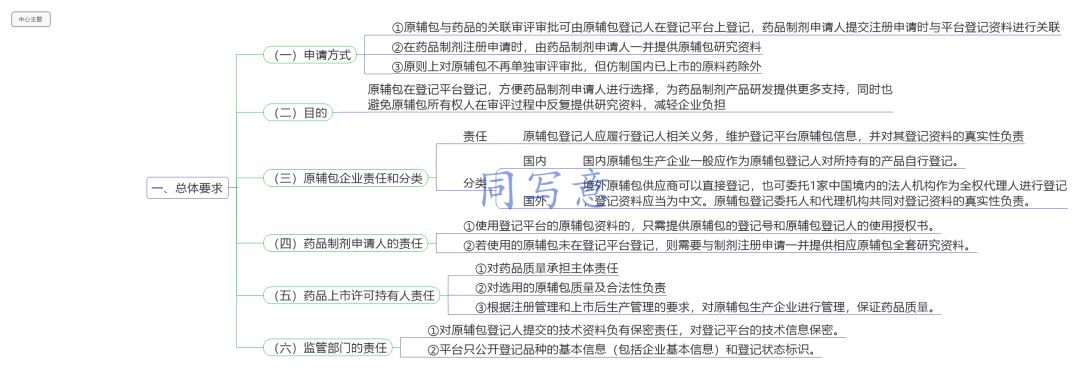 中心主题
一、总体要求
（一）申请方式
①原辅包与药品的关联审评审批可由原辅包登记人在登记平台上登记，药品制剂申请人提交注册申请时与平台登记资料进行关联
②在药品制剂注册申请时，由药品制剂申请人一并提供原辅包研究资料
③原则上对原辅包不再单独审评审批，但仿制国内已上市的原料药除外
（二）目的
原辅包在登记平台登记，方便药品制剂申请人进行选择，为药品制剂产品研发提供更多支持，同时也
避免原辅包所有权人在审评过程中反复提供研究资料，减轻企业负担
（三）原辅包企业责任和分类
责任
原辅包登记人应履行登记人相关义务，维护登记平台原辅包信息，并对其登记资料的真实性负责
分类
国内
国内原辅包生产企业一般应作为原辅包登记人对所持有的产品自行登记。
国外
境外原辅包供应商可以直接登记，也可委托1家中国境内的法人机构作为全权代理人进行登记
登记资料应当为中文。原辅包登记委托人和代理机构共同对登记资料的真实性负责。
同写意
（四）药品制剂申请人的责任
①使用登记平台的原辅包资料的，只需提供原辅包的登记号和原辅包登记人的使用授权书。
②若使用的原辅包未在登记平台登记，则需要与制剂注册申请一并提供相应原辅包全套研究资料。
（五）药品上市许可持有人责任
①对药品质量承担主体责任
②对选用的原辅包质量及合法性负责
③根据注册管理和上市后生产管理的要求，对原辅包生产企业进行管理，保证药品质量。
（六）监管部门的责任
①对原辅包登记人提交的技术资料负有保密责任，对登记平台的技术信息保密。
②平台只公开登记品种的基本信息（包括企业基本信息）和登记状态标识。